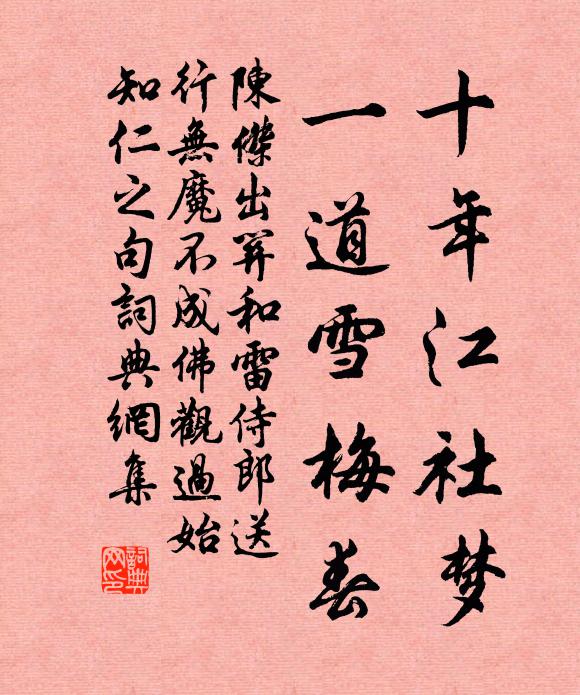 十年江社梦
一道雪梅春
陳傑出箳和雷侍郎送
行無魔不成佛觀過始
知仁之句詞典網集
詞典网印